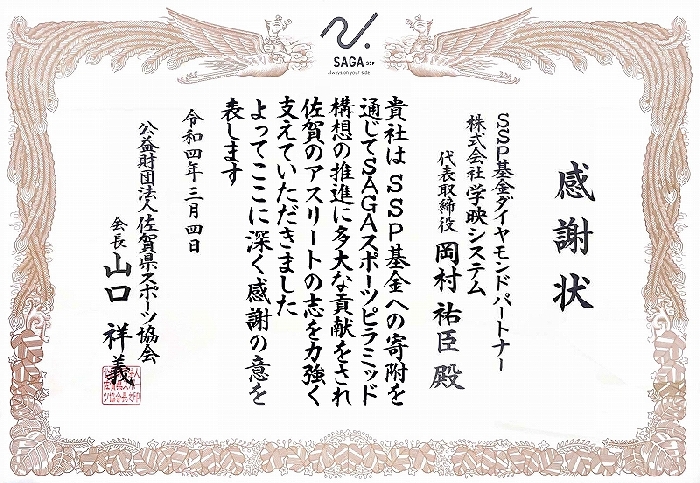 SAGA SSP
感謝状
SSP基金ダイヤモンドパートナー
株式会社学映システム
代表取締役 岡村 祐臣 殿
貴社は SSP基金への寄附を
通じてSAGAスポーツピラミッド
構想の推進に多大な貢献をされ
佐賀のアスリートの志を力強く
支えていただきました
よってここに深く感謝の意を
表します
令和四年三月四日
公益財団法人佐賀県スポーツ協会
会長 山口 祥義